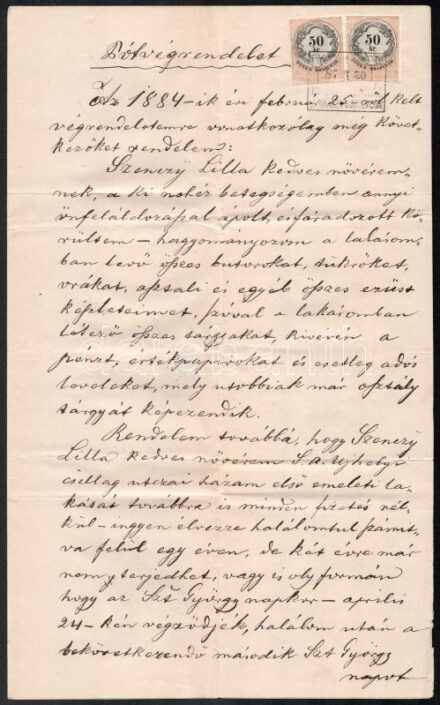 Pótvégrendelet
50 kr.
50 kr.
Az 1884-ik évi február 25-ről kelt
végrendeletemre vonatkozólag még követ-
kezőket rendelem:
Szenczÿ Lilla kedves nővérem-
nek, a ki nehéz betegségemben annyi
önfeláldozással ápolt, s fáradozott kö-
rültem – hagyományozom a lakásom-
ban levő összes butorokat, tükröket,
órákat, asztali és egyéb összes ezüst
készleteimet, szóval a lakásomban
létező összes tárgyakat, kivévén a
pénzt, értékpapirokat és esetleg adós
leveleket, mely utobbiak már osztály
tárgyát képezendik.
Rendelem továbbá, hogy Szenczÿ
Lilla kedves nővérem S. a. Ujhelyi
csillag utczai házam első emeleti la-
kását továbbra is minden fizetés nél-
kül – ingyen élvezze halálomtul számit-
va felül egy éven, de két évre már
nem terjedhet, vagy is oly formán
hogy az Szt György napkor – aprilis
24-kén végződjék, halálom után a
bekövetkezendő második Szt György
napot